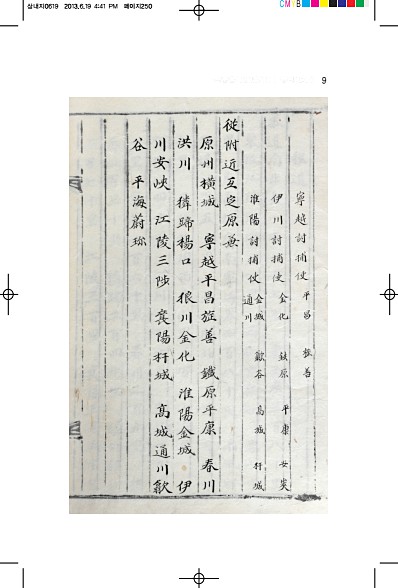 삼내지0619 2013.6.19 4:41 PM 페이지250
CMYB
9
寧越討捕使 平昌 旌善
伊川討捕使 金化 鐵原 平康 安峽
淮陽討捕使 金城 歙谷 高城 杆城
通川
從附近互定原兼
原州橫城 寧越平昌旌善 鐵原平康 春川
洪川 獜蹄楊口 狼川金化 淮陽金城 伊
川安峽 江陵三陟 襄陽杆城 高城通川歙
谷 平海蔚珎